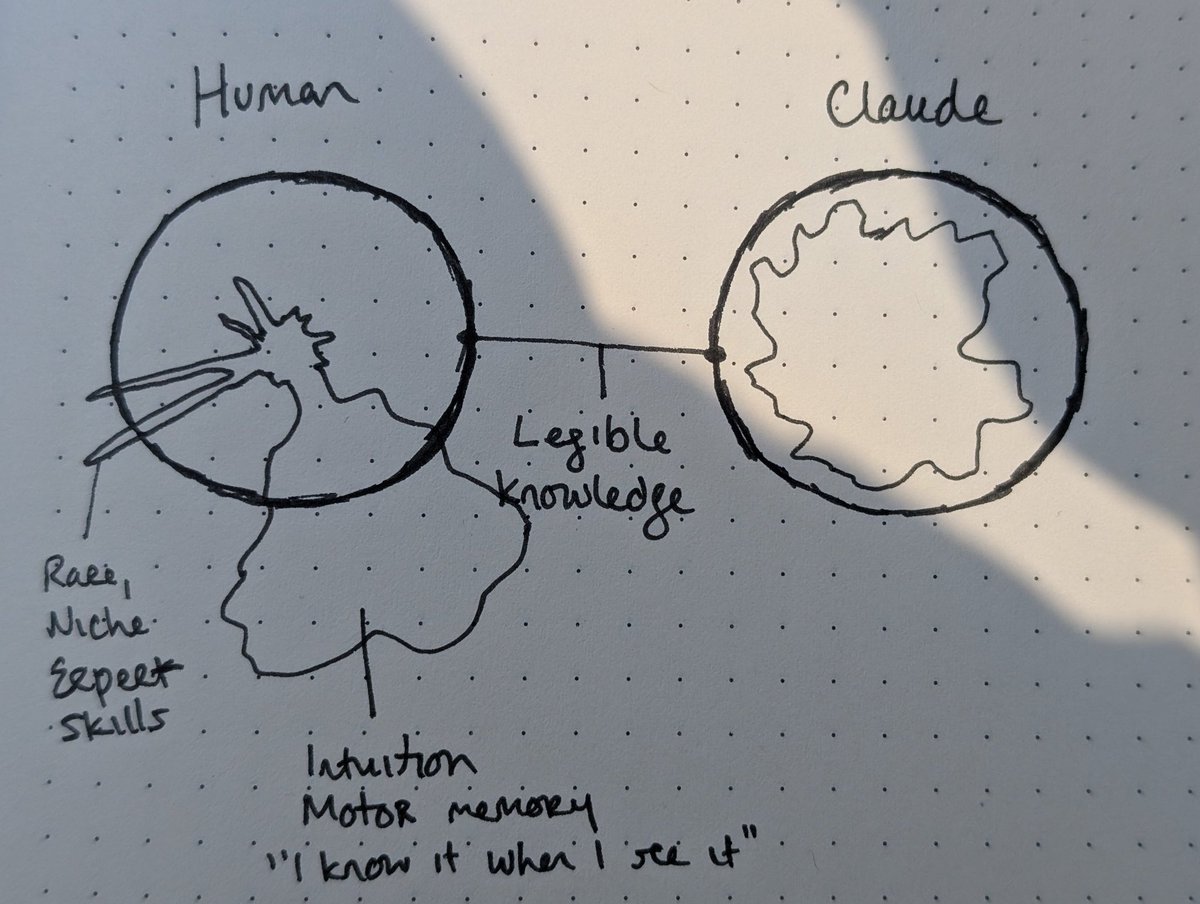 Human
Claude
Legible
knowledge
Rare,
Niche
Expert
skills
Intuition
Motor memory
"I know it when I see it"